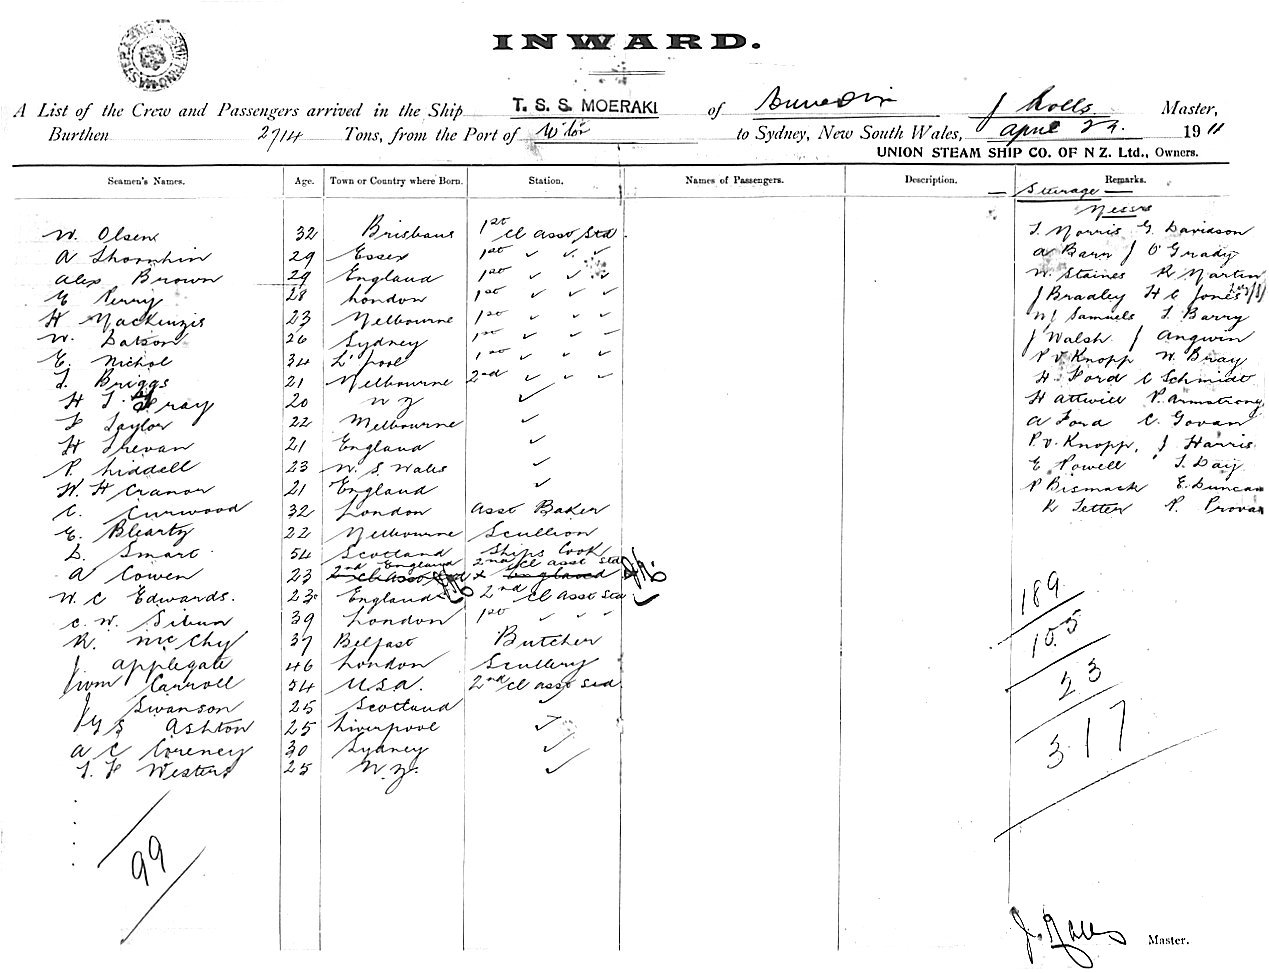 INWARD.
A List of the Crew and Passengers arrived in the Ship T. S. S. MOERAKI of Dunedin J Rolls Master,
Burthen 2714 Tons, from the Port of W'ton to Sydney, New South Wales, April 24. 1911
UNION STEAM SHIP CO. OF N Z. Ltd., Owners.
Seamen's Names. Age. Town or Country where Born. Station. Names of Passengers. Description. Remarks.
Steerage
Messrs
W. Olsen 32 Brisbane 1st Cl asst Std. T. Morris G. Davidson
A 29 Essex 1st ✓ ✓ ✓ A Barn J O'Grady
Alex Brown 29 England 1st ✓ ✓ ✓ W. Staines R Martin
E Perry 28 London 1st ✓ ✓ ✓ J Bradley H C Jones
H Mackenzie 23 Melbourne 1st ✓ ✓ ✓ W J Samuels T. Barry
W. Batson 26 Sydney 1st ✓ ✓ ✓ J Walsh J Angwin
E. Nichol 34 L'pool 1st ✓ ✓ ✓ P V Knopp W. Bray
T. Briggs 21 Melbourne 2nd ✓ ✓ ✓ H. Ford C Schmidt
H T. Gray 20 N Z ✓ H Attwill P. Armstrong
F Taylor 22 Melbourne ✓ A Ford C. Govan
H Trevan 21 England ✓ P. V. Knopp, J Harris
P. Liddell 23 N. S Wales ✓ E Powell T. Day
W. H Cranor 21 England ✓ P Bismack E. Duncan
C. Curwood 32 London Asst Baker R Tetter P. Provan
E. Blearty 22 Melbourne Scullion
D. Smart 54 Scotland Ships Cook
A Cowen 23 England 2nd Cl asst Std
W. C Edwards. 23 England 2nd Cl asst Std ✓
C. W. Sibun 39 London 1st ✓ ✓ ✓
R. McChy 37 Belfast Butcher
J Applegate 46 London Scullery
Wm Carroll 54 U.S.A. 2nd Cl asst Std.
J Swanson 25 Scotland ✓
G S Ashton 25 Liverpool ✓
A C Coreney 30 Sydney ✓
T. F Westers 25 N. Z. ✓
99
189
105
23
317
J. Rolls Master.